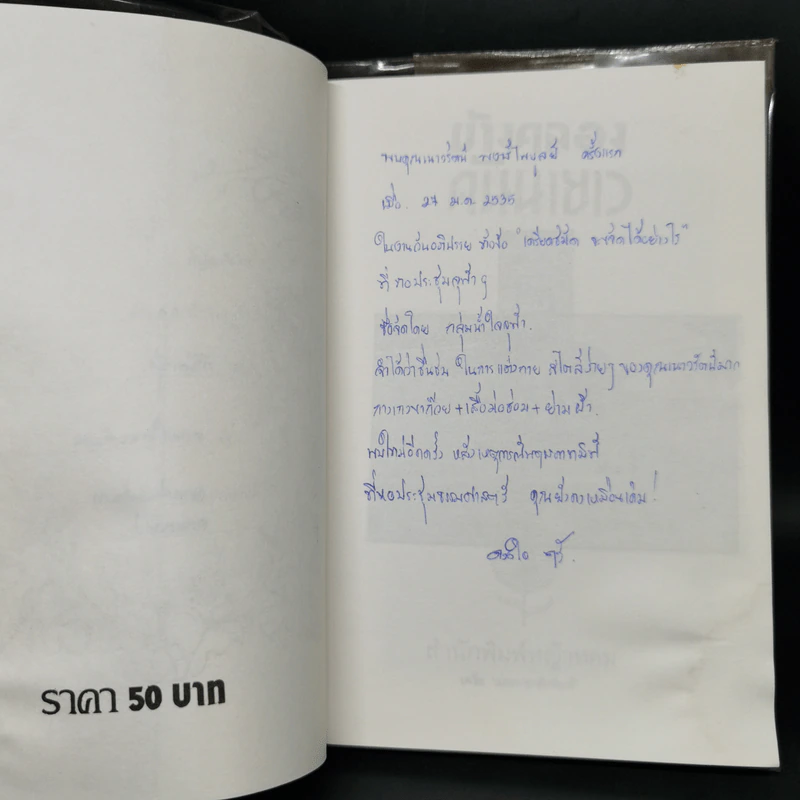 พบคุณเนาวรัตน์ พงษ์ไพบูลย์ ครั้งแรก
เมื่อ 27 ม.ค. 2535
ในงานอภิปราย หัวข้อ "
ที่หอประชุมจุฬาฯ
ซึ่งจัดโดย กลุ่มน้ำใจจุฬา.
จำได้ว่าชื่นชม ในการแต่งกาย สไตล์ง่ายๆ ของคุณเนาวรัตน์มาก
กางเกงขาก๊วย + เสื้อม่อฮ่อม + ย่ามผ้า.
พบใหม่อีกครั้ง หลังเหตุการณ์พฤษภาทมิฬ
ที่หอประชุมธรรมศาสตร์ คุณยังคงเหมือนเดิม!
ราคา 50 บาท